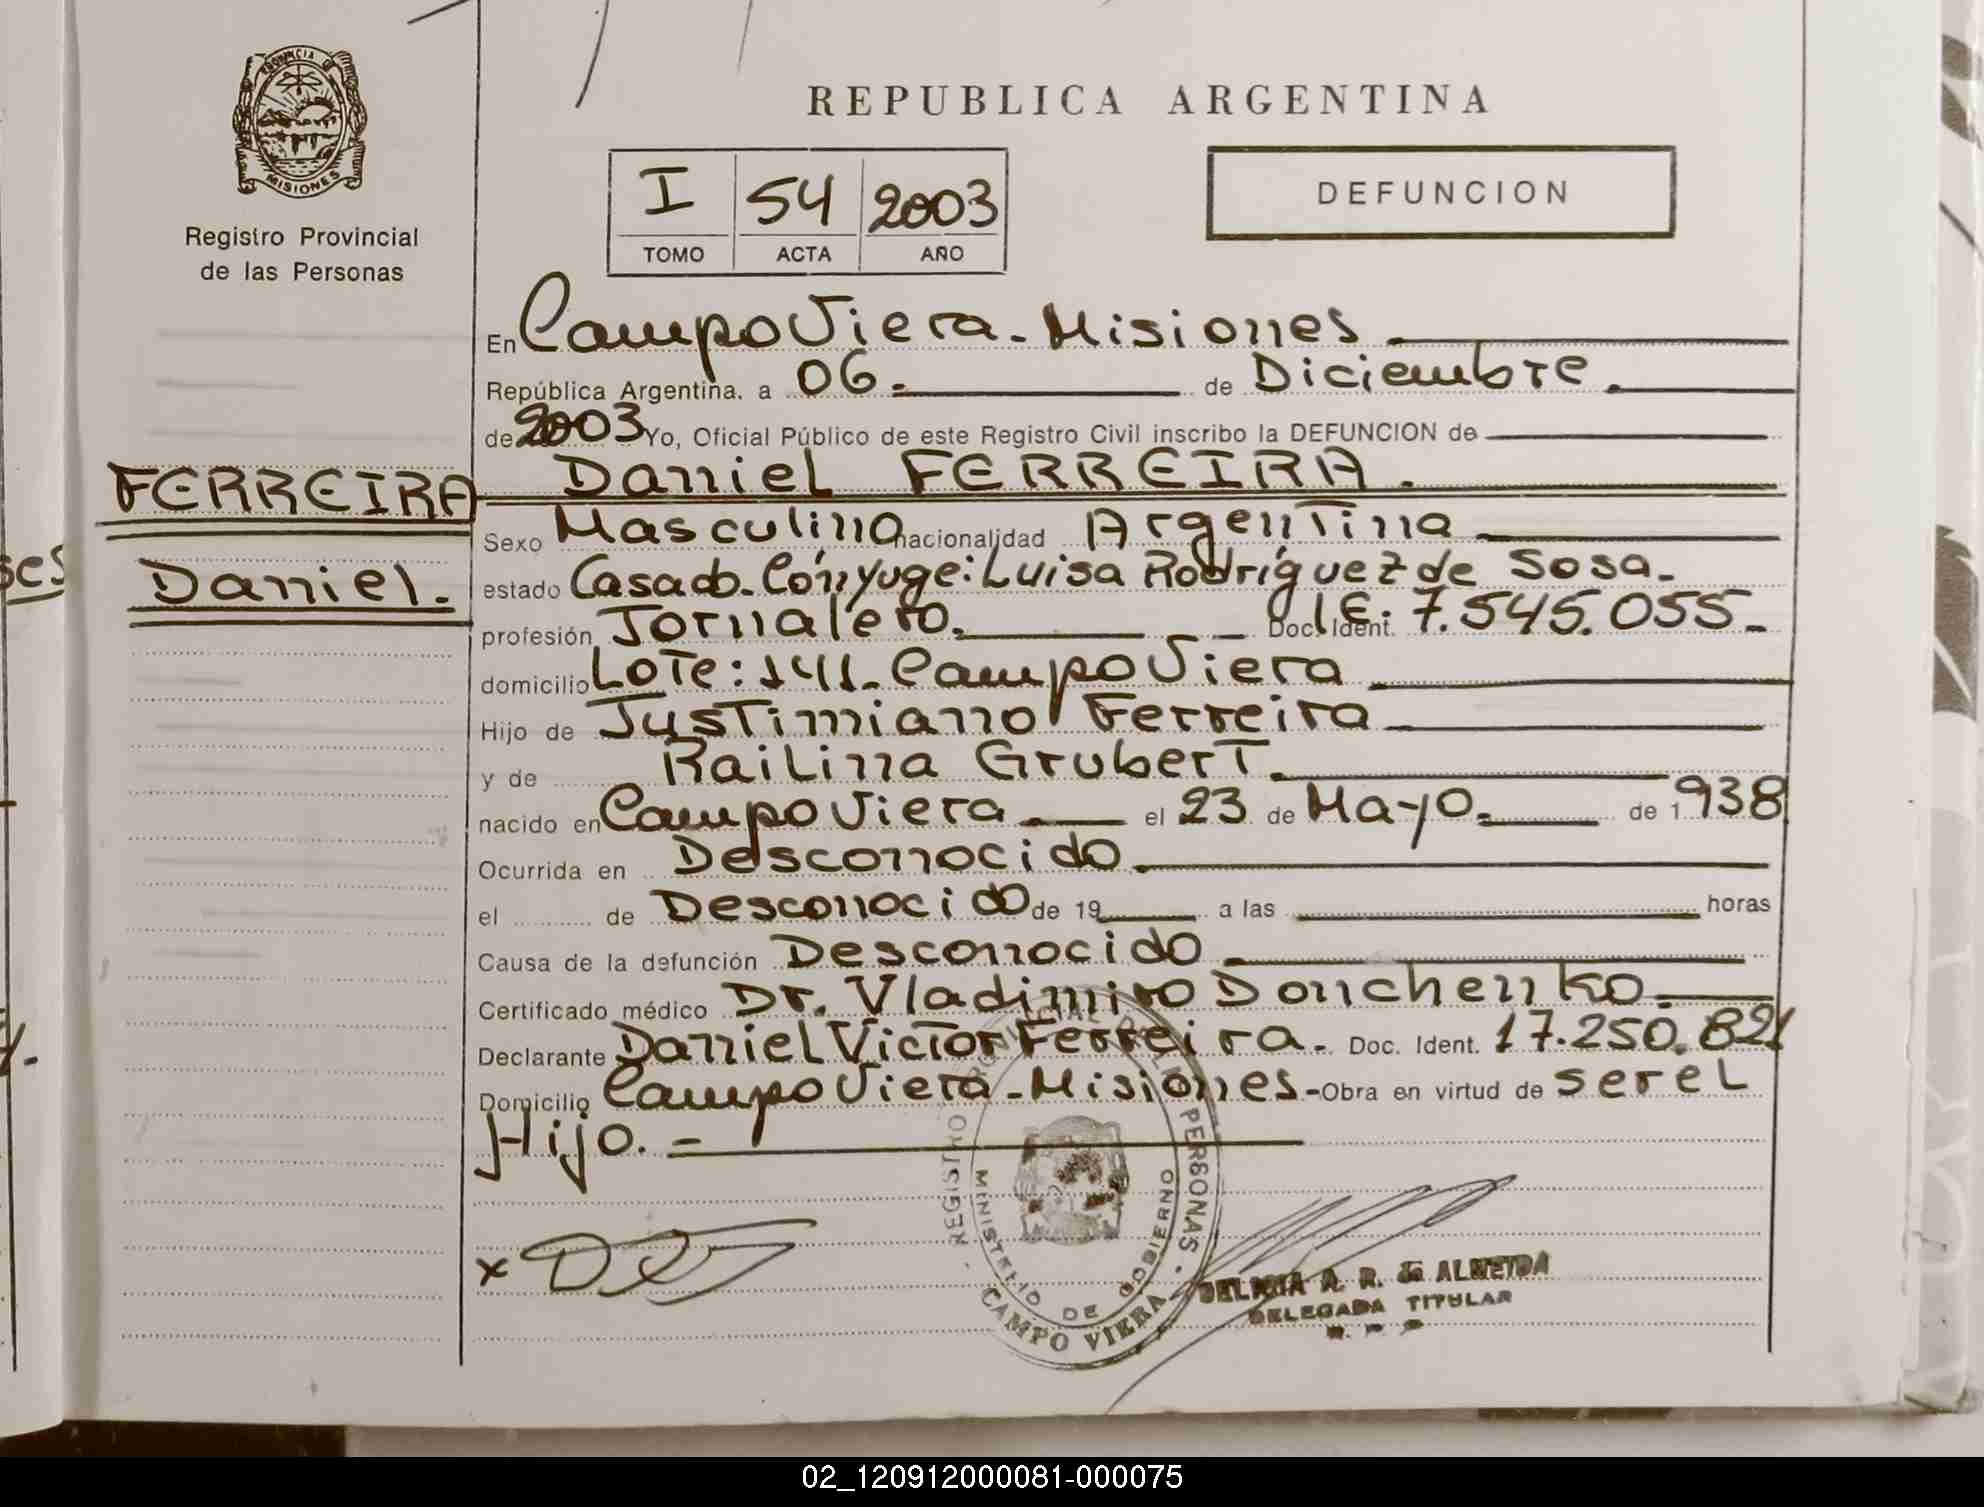 PROVINCIA D
MISIONES
Registro Provincial
de las Personas
REPUBLICA ARGENTINA
I 54 2003
TOMO ACTA AÑO
DEFUNCION
En Campo Viera - Misiones
República Argentina, a 06.- de Diciembre.
de 2003 Yo, Oficial Público de este Registro Civil inscribo la DEFUNCION de
FERREIRA
Daniel FERREIRA.
Sexo Masculino nacionalidad Argentina
ses
Daniel.-
estado Casado. Cónyuge: Luisa Rodríguez de Sosa.
profesión Jornalero. Doc. Ident. L.E: 7.545.055.-
domicilio Lote: 141- Campo Viera
Hijo de Justimiano Ferreira
y de Railina Grubert.
nacido en Campo Viera el 23 de Mayo. de 1938
Ocurrida en Desconocido
el de Desconocido de 19 a las horas
Causa de la defunción Desconocido
Certificado médico Dr. Vladimiro Donchenko.
Declarante Daniel Victor Ferreira. Doc. Ident. 17.250.821
Domicilio Campo Viera - Misiones - Obra en virtud de ser el
Hijo. -
REGISTRO PROVINCIAL DE LAS PERSONAS
MINISTERIO DE GOBIERNO
CAMPO VIERA
x
A. R. de ALMEIDA
DELEGADA TITULAR
R. P. P.
02_120912000081-000075